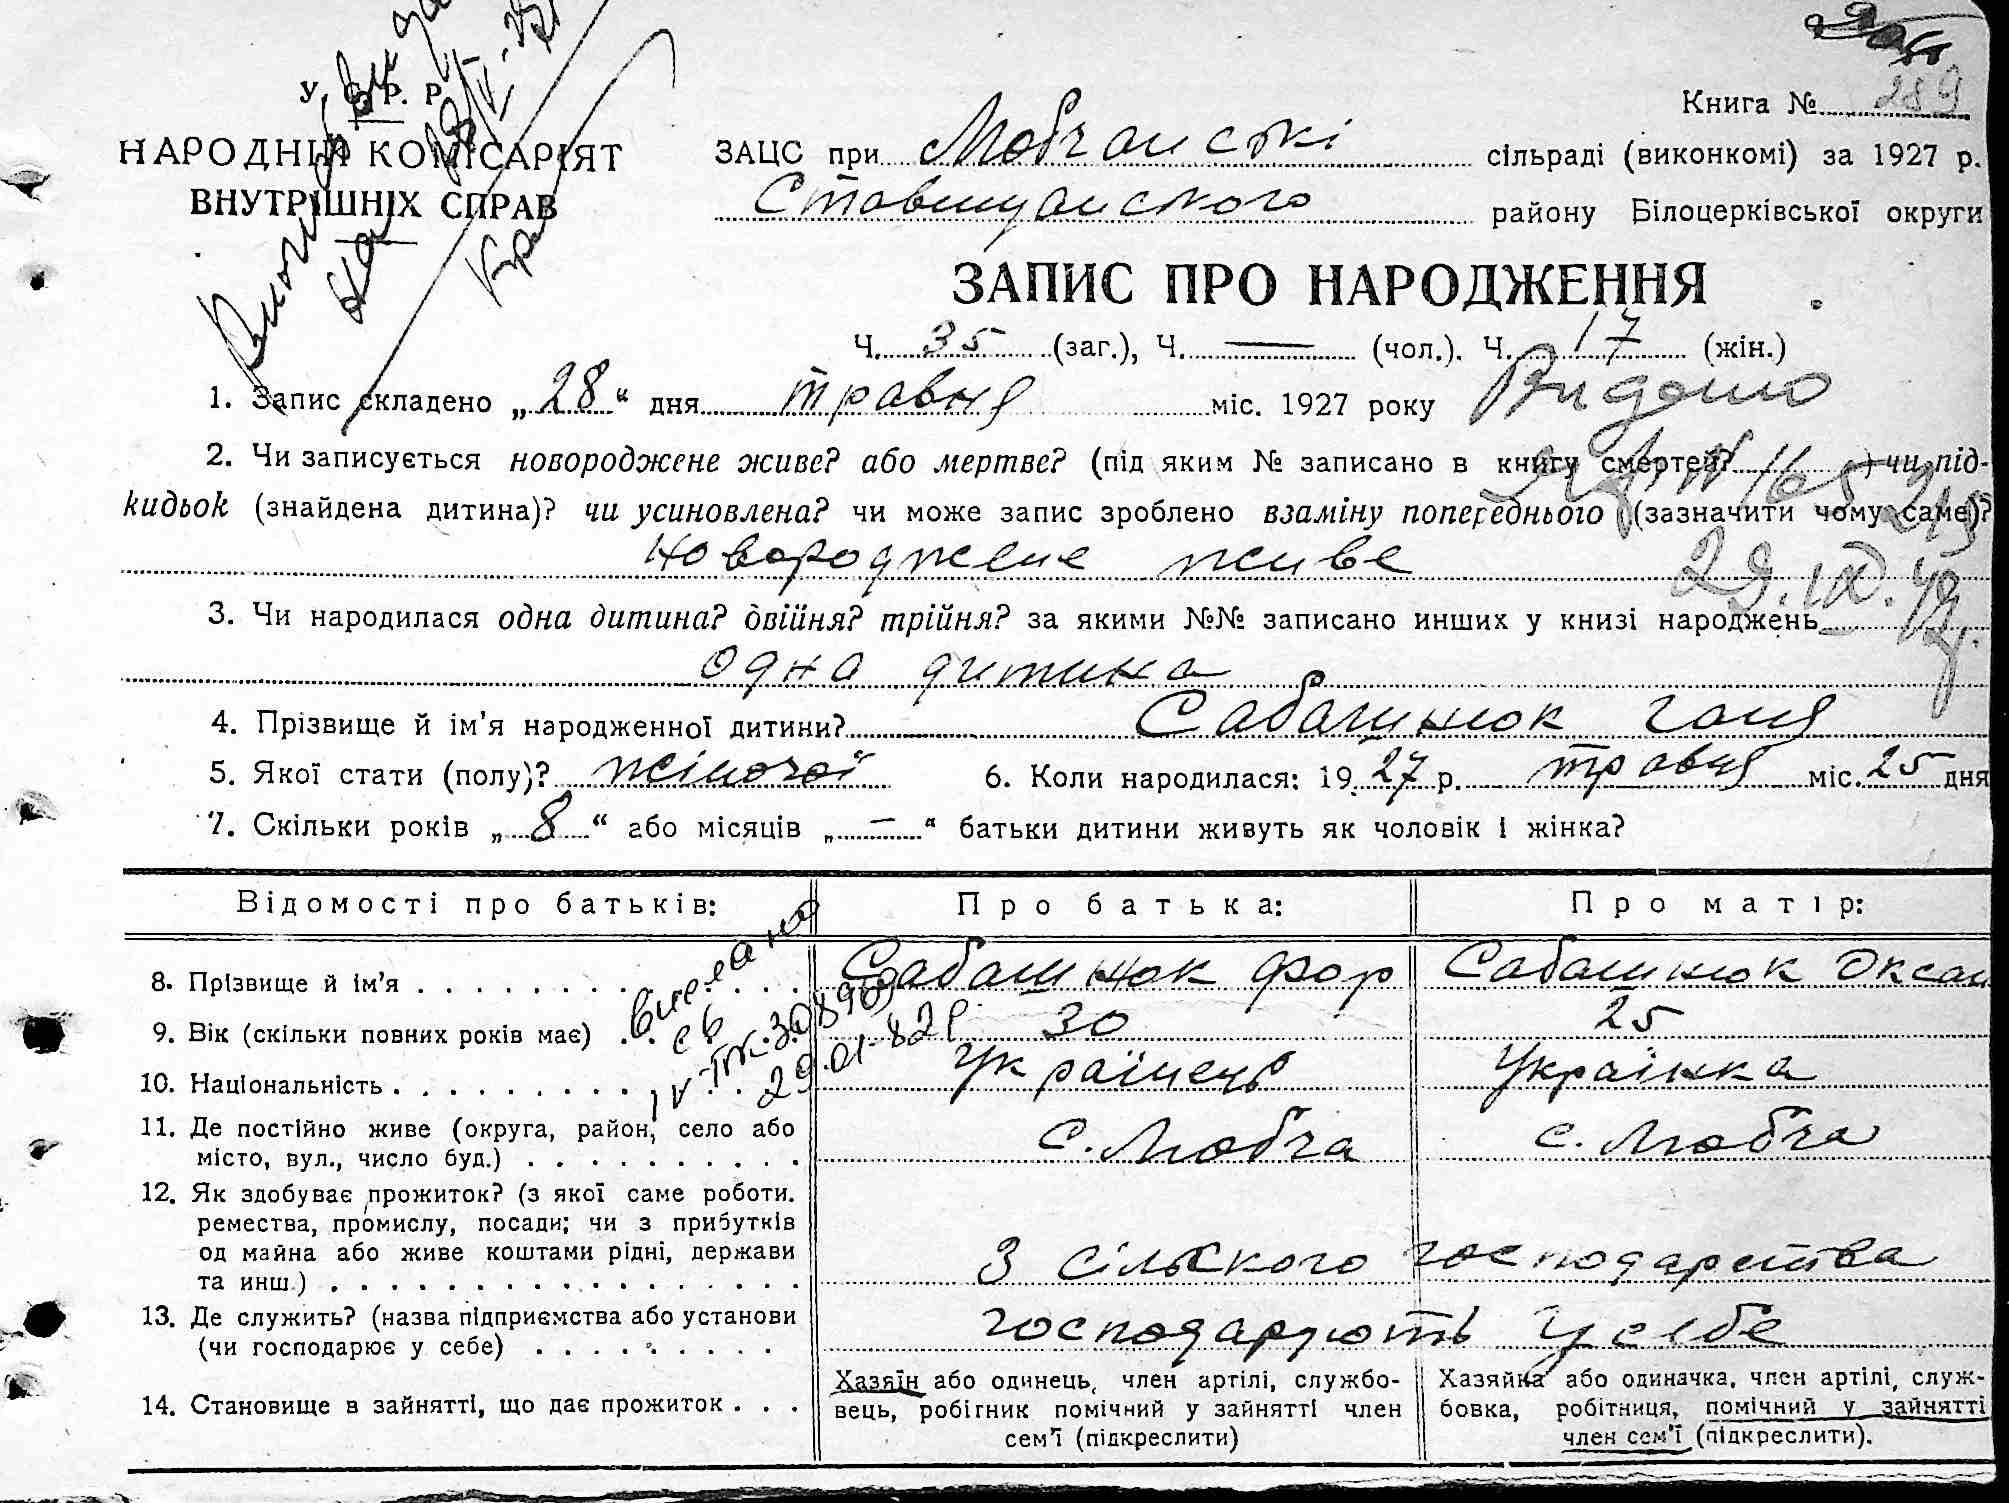 У. С. Р. Р.
НАРОДНІЙ КОМІСАРІЯТ
ВНУТРІШНІХ СПРАВ
Книга № 289
ЗАЦС при сільраді (виконкомі) за 1927 р.
Ставищанского району Білоцерківської округи
ЗАПИС ПРО НАРОДЖЕННЯ
Ч. 35 (заг.), Ч. — (чол.). Ч. 17 (жін.)
1. Запис складено „28“ дня травня міс. 1927 року
Видано
2. Чи записується новороджене живе? або мертве? (під яким № записано в книгу смертей? ) чи під-
кидьок (знайдена дитина)? чи усиновлена? чи може запис зроблено взаміну попереднього (зазначити чому саме)?
новороджене живе
29.IX.
3. Чи народилася одна дитина? двійня? трійня? за якими №№ записано инших у книзі народжень —
одна дитина
4. Прізвище й ім'я народженної дитини? Сабашнюк Ганя
5. Якої стати (полу)? жіночої 6. Коли народилася: 1927 р. травня міс. 25 дня
7. Скільки років „8“ або місяців „—“ батьки дитини живуть як чоловік і жінка?
Відомості про батьків: Про батька: Про матір:
8. Прізвище й ім'я . . . Сабашнюк Фор Сабашнюк Оксан
9. Вік (скільки повних років має) . . . 30 25
10. Національність . . . Українець Українка
11. Де постійно живе (округа, район, село або
місто, вул., число буд.) . . . с. Любча с. Любча
12. Як здобуває прожиток? (з якої саме роботи.
ремества, промислу, посади; чи з прибутків
од майна або живе коштами рідні, держави
та инш.) . . . З сільского господарства
13. Де служить? (назва підприємства або установи
(чи господарює у себе) . . . господарюють у себе
14. Становище в зайнятті, що дає прожиток . . .
Хазяїн або одинець, член артілі, службо-
вець, робігник помічний у зайнятті член
сем'ї (підкреслити)
Хазяйка або одиначка, член артілі, служ-
бовка, робітниця, помічний у зайнятті
член сем'ї (підкреслити).